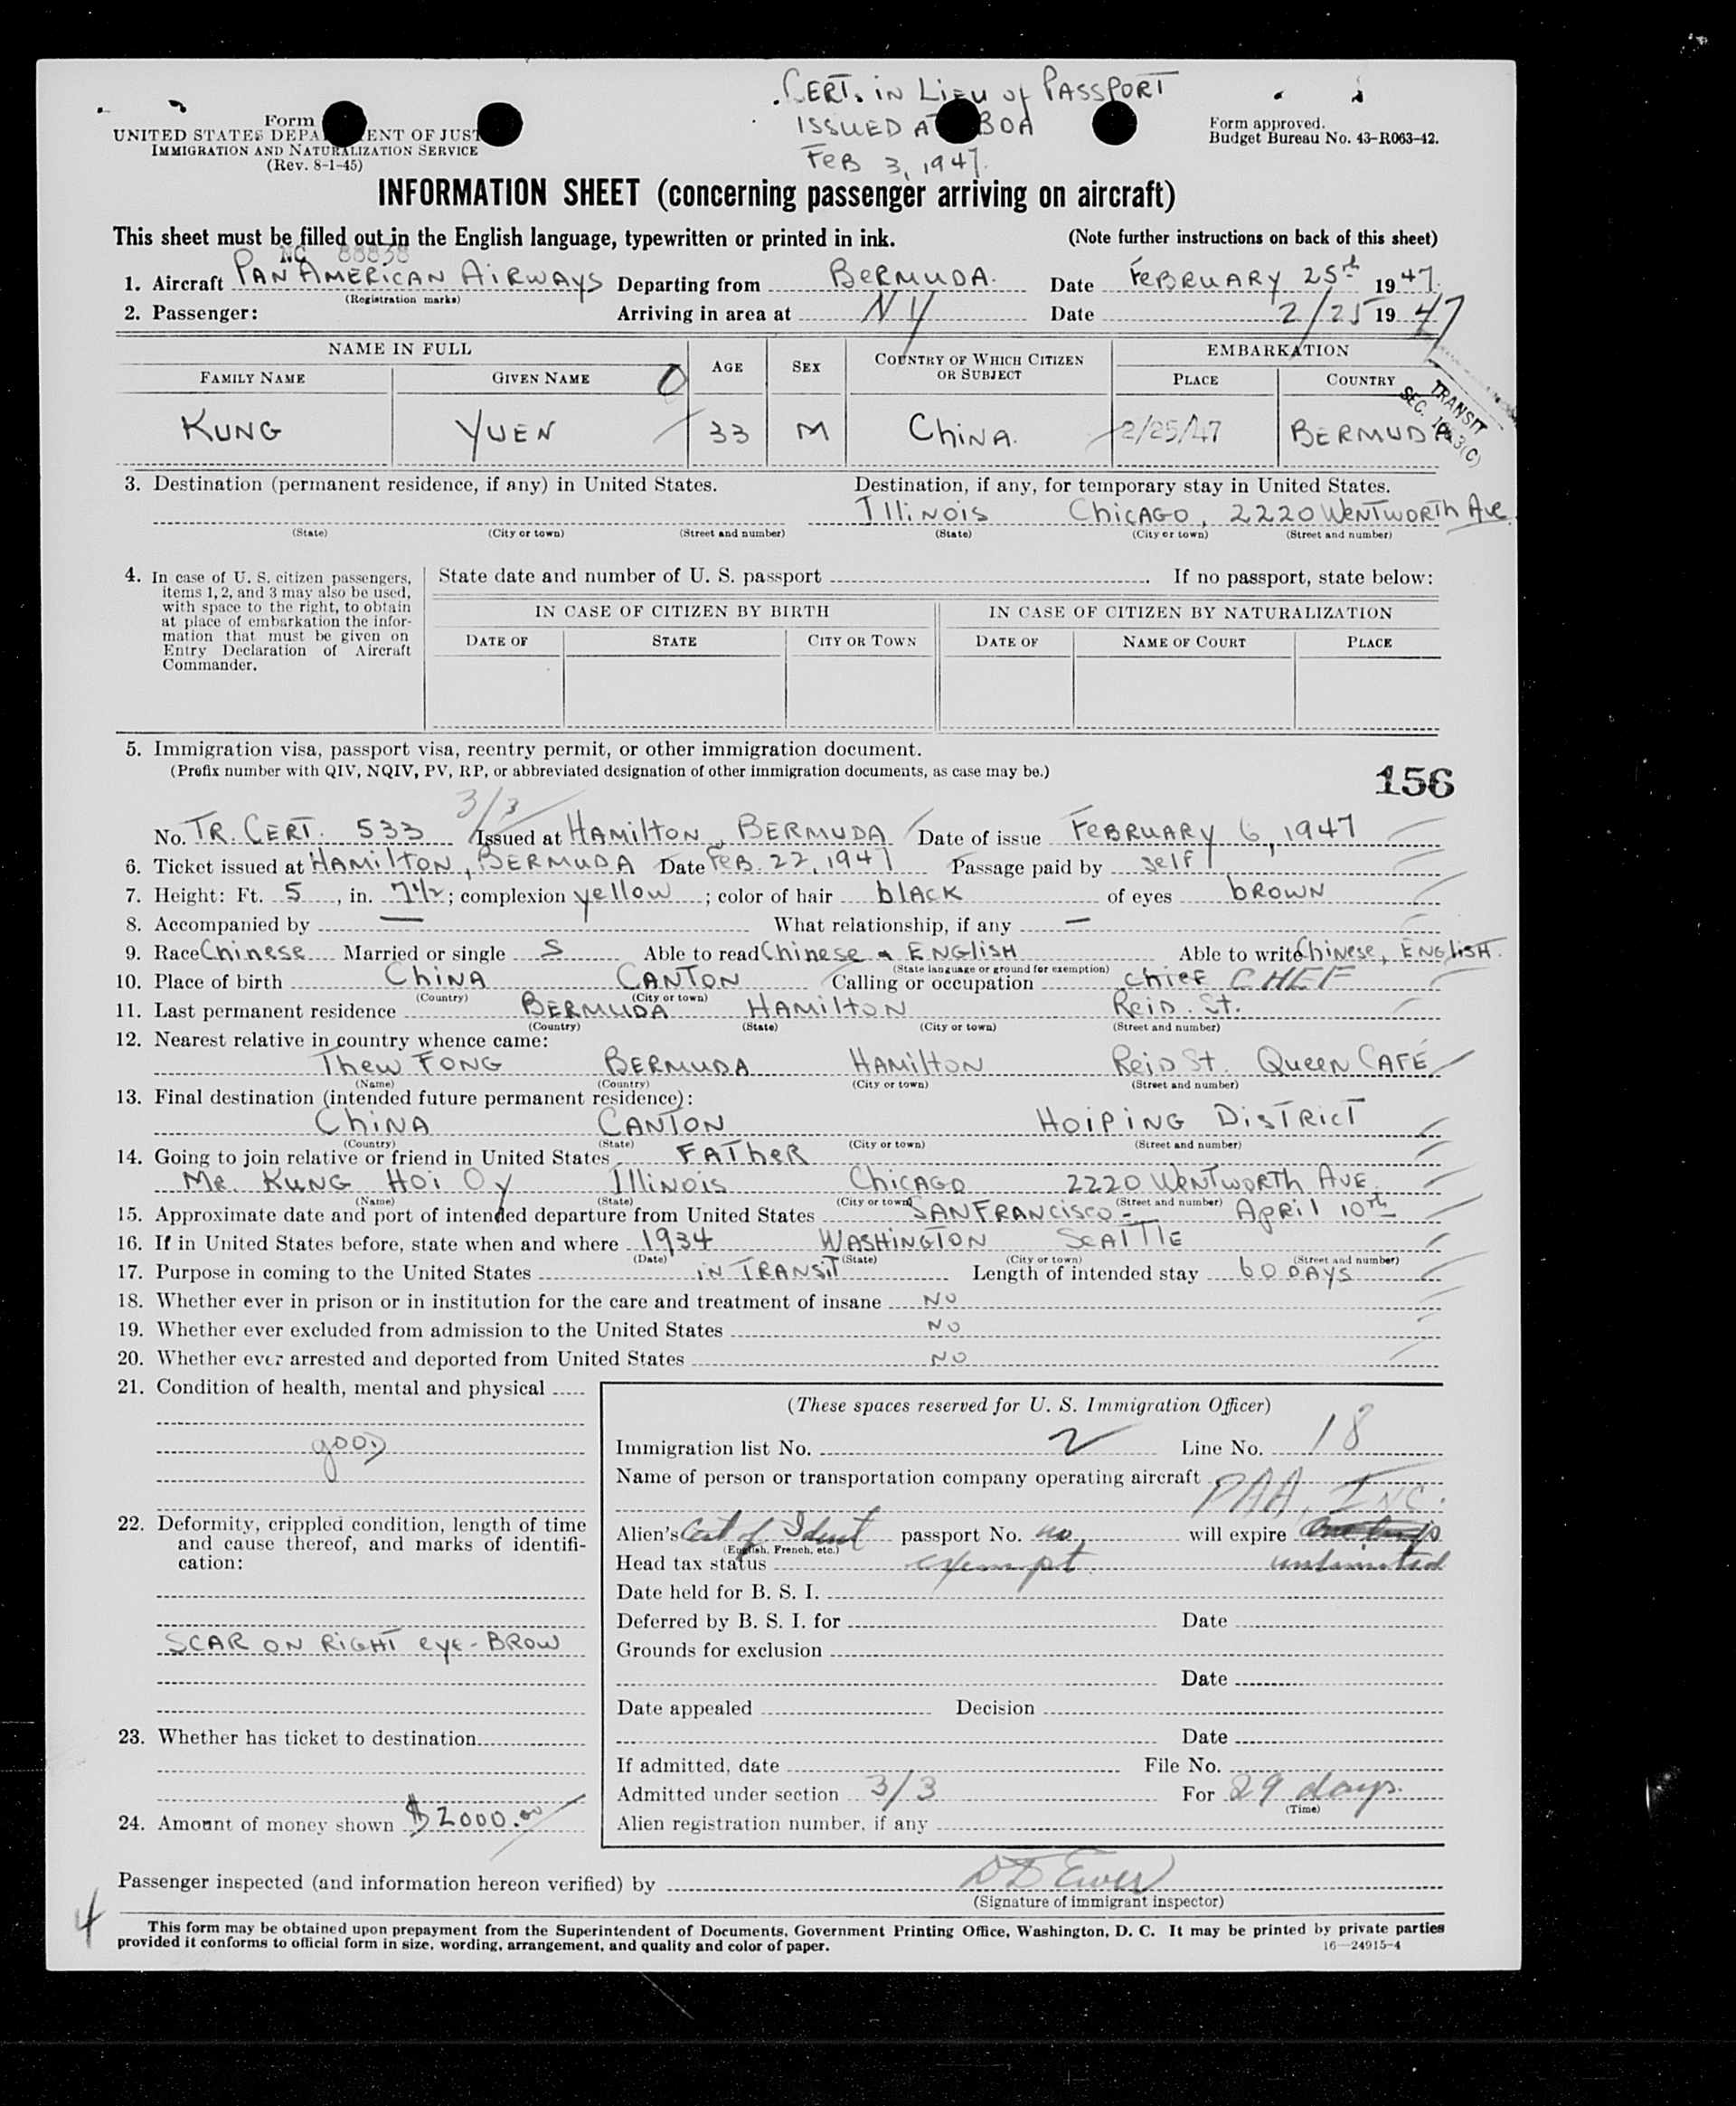 CERT. IN LIEU of PASSPORT
ISSUED AT BDA
FEB 3, 1947.
Form
UNITED STATES DEPA ENT OF JUST
IMMIGRATION AND NATURALIZATION SERVICE
(Rev. 8-1-45)
Form approved.
Budget Bureau No. 43-R063-42.
INFORMATION SHEET (concerning passenger arriving on aircraft)
This sheet must be filled out in the English language, typewritten or printed in ink. (Note further instructions on back of this sheet)
NC 88838
1. Aircraft PAN AMERICAN AIRWAYS Departing from BERMUDA. Date FEBRUARY 25th 1947.
(Registration marks)
2. Passenger: Arriving in area at NY Date 2/25 1947
NAME IN FULL AGE SEX COUNTRY OF WHICH CITIZEN OR SUBJECT EMBARKATION
FAMILY NAME GIVEN NAME PLACE COUNTRY
TRANSIT
SEC. 3(C)
KUNG YUEN 33 M CHINA. 2/25/47 BERMUDA
3. Destination (permanent residence, if any) in United States. Destination, if any, for temporary stay in United States.
ILLINOIS CHICAGO, 2220 WENTWORTH AVE.
(State) (City or town) (Street and number) (State) (City or town) (Street and number)
4. In case of U. S. citizen passengers, items 1, 2, and 3 may also be used, with space to the right, to obtain at place of embarkation the information that must be given on Entry Declaration of Aircraft Commander.
State date and number of U. S. passport . If no passport, state below:
IN CASE OF CITIZEN BY BIRTH IN CASE OF CITIZEN BY NATURALIZATION
DATE OF STATE CITY OR TOWN DATE OF NAME OF COURT PLACE
5. Immigration visa, passport visa, reentry permit, or other immigration document.
(Prefix number with QIV, NQIV, PV, RP, or abbreviated designation of other immigration documents, as case may be.)
156
3/3
No. TR. CERT. 533 Issued at HAMILTON, BERMUDA Date of issue FEBRUARY 6, 1947
6. Ticket issued at HAMILTON, BERMUDA Date FEB. 22, 1947 Passage paid by self
7. Height: Ft. 5, in. 7 1/2; complexion yellow; color of hair black of eyes brown
8. Accompanied by — What relationship, if any —
9. Race Chinese Married or single S Able to read Chinese & ENGLISH Able to write Chinese, ENGLISH.
(State language or ground for exemption)
10. Place of birth CHINA CANTON Calling or occupation chief CHEF
(Country) (City or town)
11. Last permanent residence BERMUDA HAMILTON REID. St.
(Country) (State) (City or town) (Street and number)
12. Nearest relative in country whence came:
Thew FONG BERMUDA HAMILTON REID St. QUEEN CAFÉ
(Name) (Country) (City or town) (Street and number)
13. Final destination (intended future permanent residence):
CHINA CANTON HOIPING DISTRICT
(Country) (State) (City or town) (Street and number)
14. Going to join relative or friend in United States FATHER
MR. KUNG HOI OY ILLINOIS CHICAGO 2220 WENTWORTH AVE.
(Name) (State) (City or town) (Street and number)
15. Approximate date and port of intended departure from United States SANFRANCISCO - April 10th
16. If in United States before, state when and where 1934 WASHINGTON SEATTLE
(Date) (State) (City or town) (Street and number)
17. Purpose in coming to the United States IN TRANSIT Length of intended stay 60 DAYS
18. Whether ever in prison or in institution for the care and treatment of insane NO
19. Whether ever excluded from admission to the United States NO
20. Whether ever arrested and deported from United States NO
21. Condition of health, mental and physical
good
22. Deformity, crippled condition, length of time and cause thereof, and marks of identification:
SCAR ON RIGHT EYE-BROW
23. Whether has ticket to destination
24. Amount of money shown $2000.00
(These spaces reserved for U. S. Immigration Officer)
Immigration list No. 2 Line No. 18
Name of person or transportation company operating aircraft
PAA, INC.
Alien's Cert of Ident passport No. no will expire
(English, French, etc.)
Head tax status exempt. unlimited
Date held for B. S. I.
Deferred by B. S. I. for Date
Grounds for exclusion
Date
Date appealed Decision
Date
If admitted, date File No.
Admitted under section 3/3 For 29 days.
(Time)
Alien registration number, if any
Passenger inspected (and information hereon verified) by
(Signature of immigrant inspector)
4
This form may be obtained upon prepayment from the Superintendent of Documents, Government Printing Office, Washington, D. C. It may be printed by private parties
provided it conforms to official form in size, wording, arrangement, and quality and color of paper.
16—24915-4